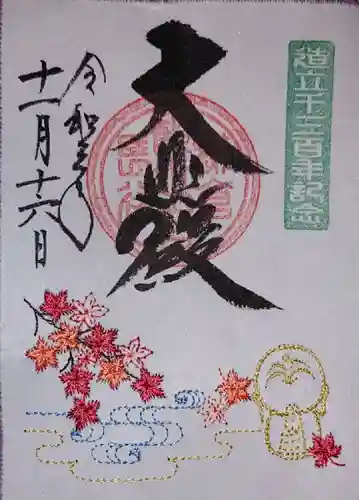 造立千三百年記念
大悲殿
令和三年
十一月十六日